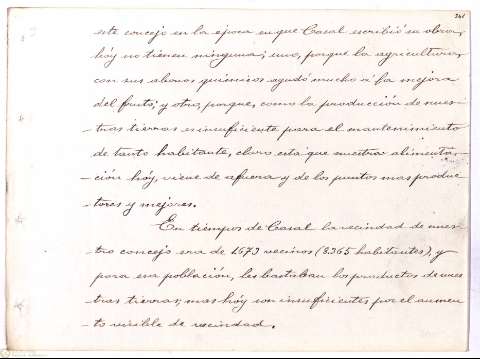 241
este concejo en la época en que Casal escribió su obra,
hoy no tienen ninguna; uno, porque la agricultura,
con sus abonos químicos ayudó mucho á la mejora
del fruto; y otro, porque, como la producción de nues-
tras tierras es insuficiente para el mantenimiento
de tanto habitante, claro está que nuestra alimenta-
ción hoy, viene de afuera y de los puntos mas produc-
tores y mejores.
En tiempos de Casal la vecindad de nues-
tro concejo era de 1673 vecinos (8.365 habitantes), y
para esa población, les bastaban los productos de nues
tras tierras; mas hoy son insuficientes por el aumen
to visible de vecindad.